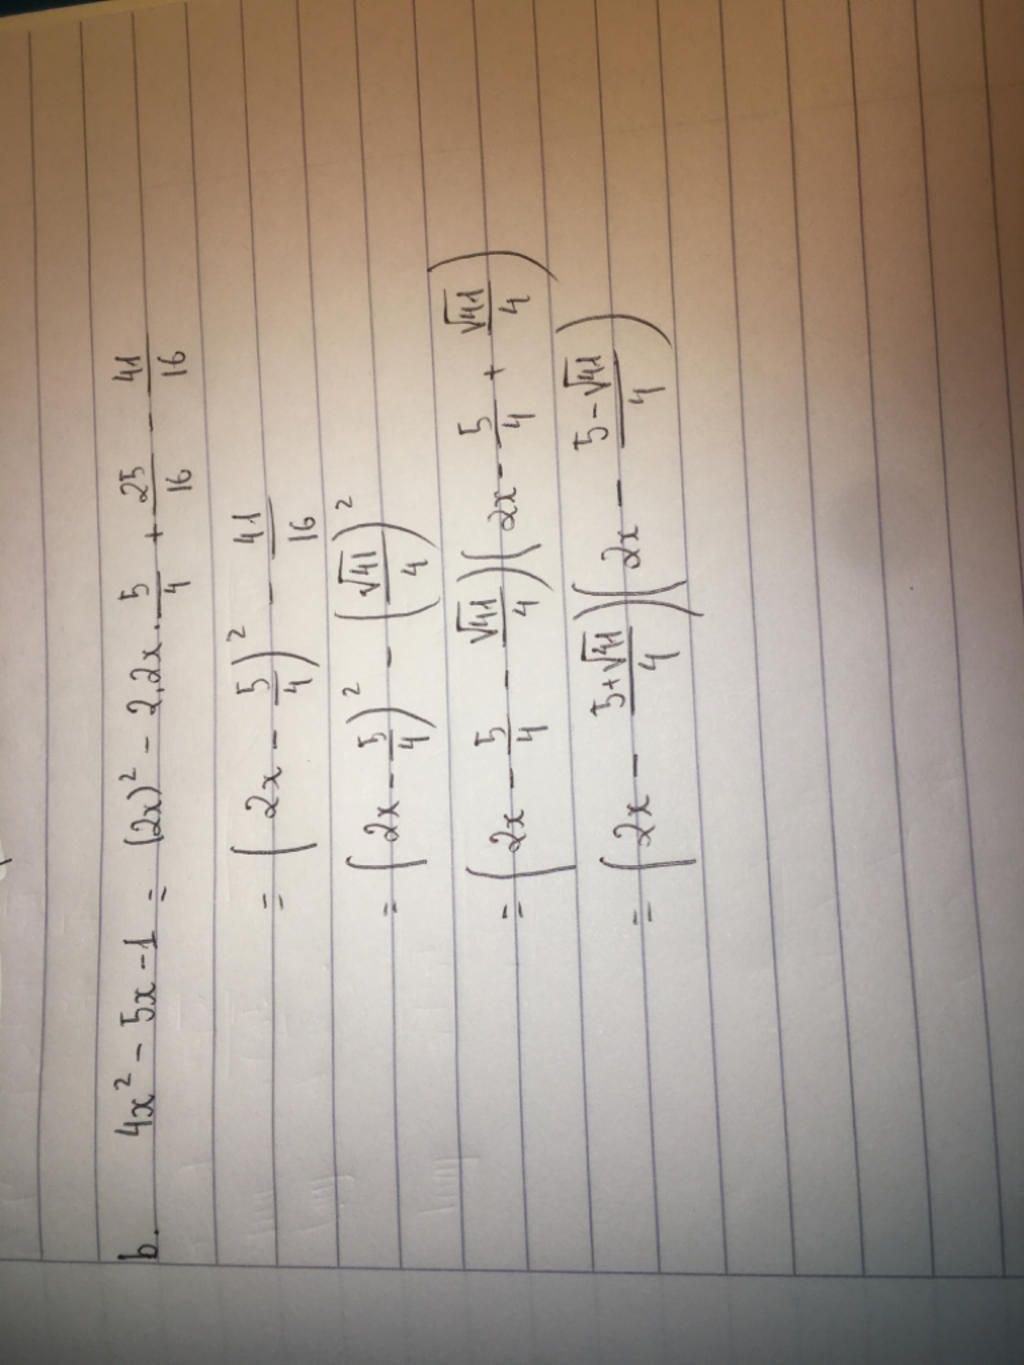 b. 4x² - 5x - 1 = (2x)² - 2.2x.5/4 + 25/16 - 41/16
= (2x - 5/4)² - 41/16
= (2x - 5/4)² - (√41/4)²
= (2x - 5/4 - √41/4)(2x - 5/4 + √41/4)
= (2x - 5+√41/4)(2x - 5-√41/4)